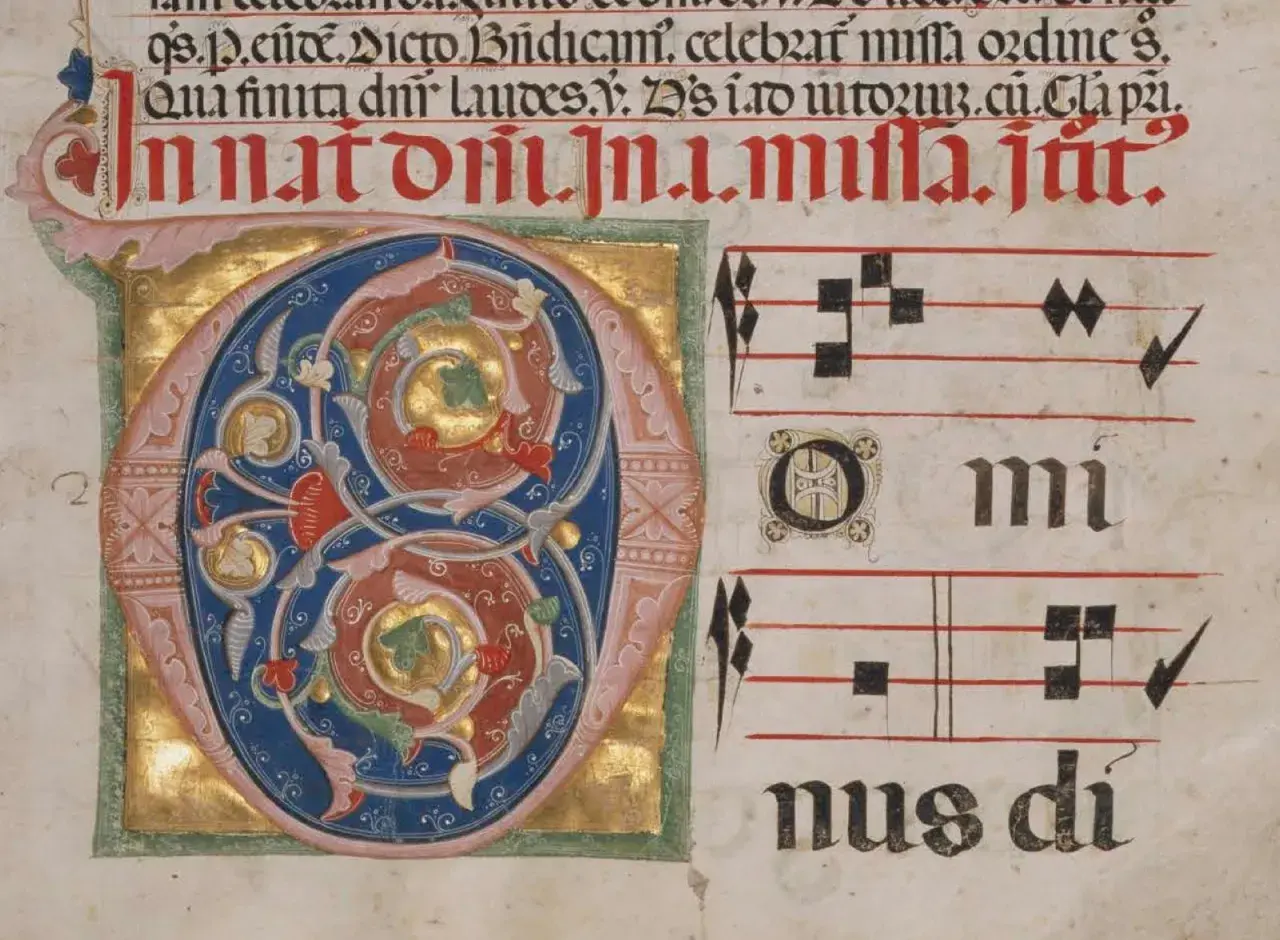 q̄s. P. eūdē. Dicto. Bn̄dicam⁹. celebrat᷑ missa ordine s̊.
Qua finita dn̄r laudes. v̄. D's i ad iutoriuꝫ. cū. Glā pr̄i.
In nat̄ dn̄i. In .i. missa. ītͦit⁹.
D O mi
nus di